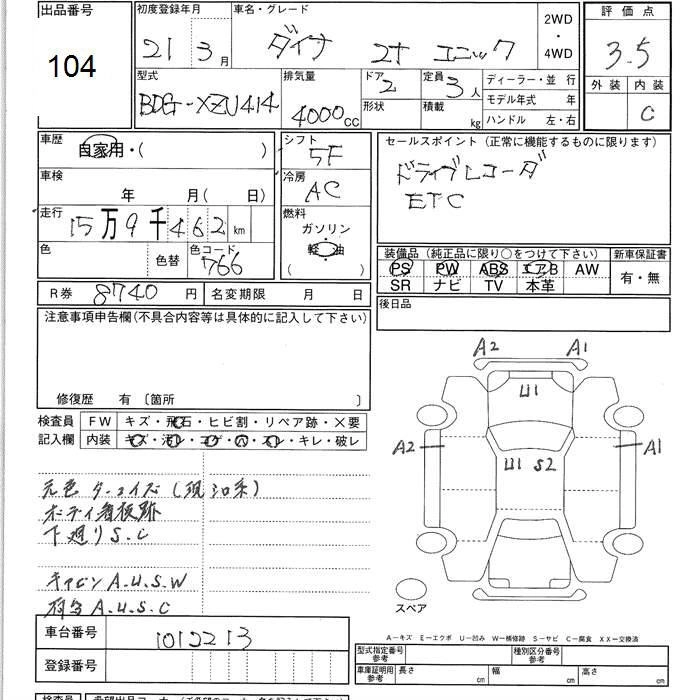 出品番号
104
初度登録年月
21 3月
車名・グレード
ダイナ 2t エニック
2WD
・
4WD
評価点
3.5
外装 内装
C
型式
BDG-XZU414
排気量
4000cc
ドア
2
形状
定員
3人
積載
kg
ディーラー・並 行
モデル年式 年
ハンドル 左・右
車歴
自家用・( )
車検
年 月( 日)
走行
15万9千462km
色
色替
色コード
766
シフト
5F
冷房
AC
燃料
ガソリン
軽油
( )
セールスポイント(正常に機能するものに限ります)
ドライブレコーダ
ETC
装備品(純正品に限り○をつけて下さい)
PS PW ABS エアB AW
SR ナビ TV 本革
新車保証書
有・無
R券 8740円
名変期限 月 日
後日品
注意事項申告欄(不具合内容等は具体的に記入して下さい)
修復歴 有 〔箇所 〕
検査員
記入欄
FW キズ・飛石・ヒビ割・リペア跡・×要
内装 キズ・汚レ・コゲ・穴・スレ・キレ・破レ
元色
ボディ看板跡
下廻りS.C
キャビンA.U.S.W
荷台A.U.S.C
A2 A1
U1
A2 A1
U1 S2
スペア
車台番号 1012213
登録番号
A-キズ E-エクボ U-凹み W-補修跡 S-サビ C-腐食 XX-交換済
型式指定番号
参考
種別区分番号
参考
車庫証明用
参考
長さ cm
幅 cm
高さ cm